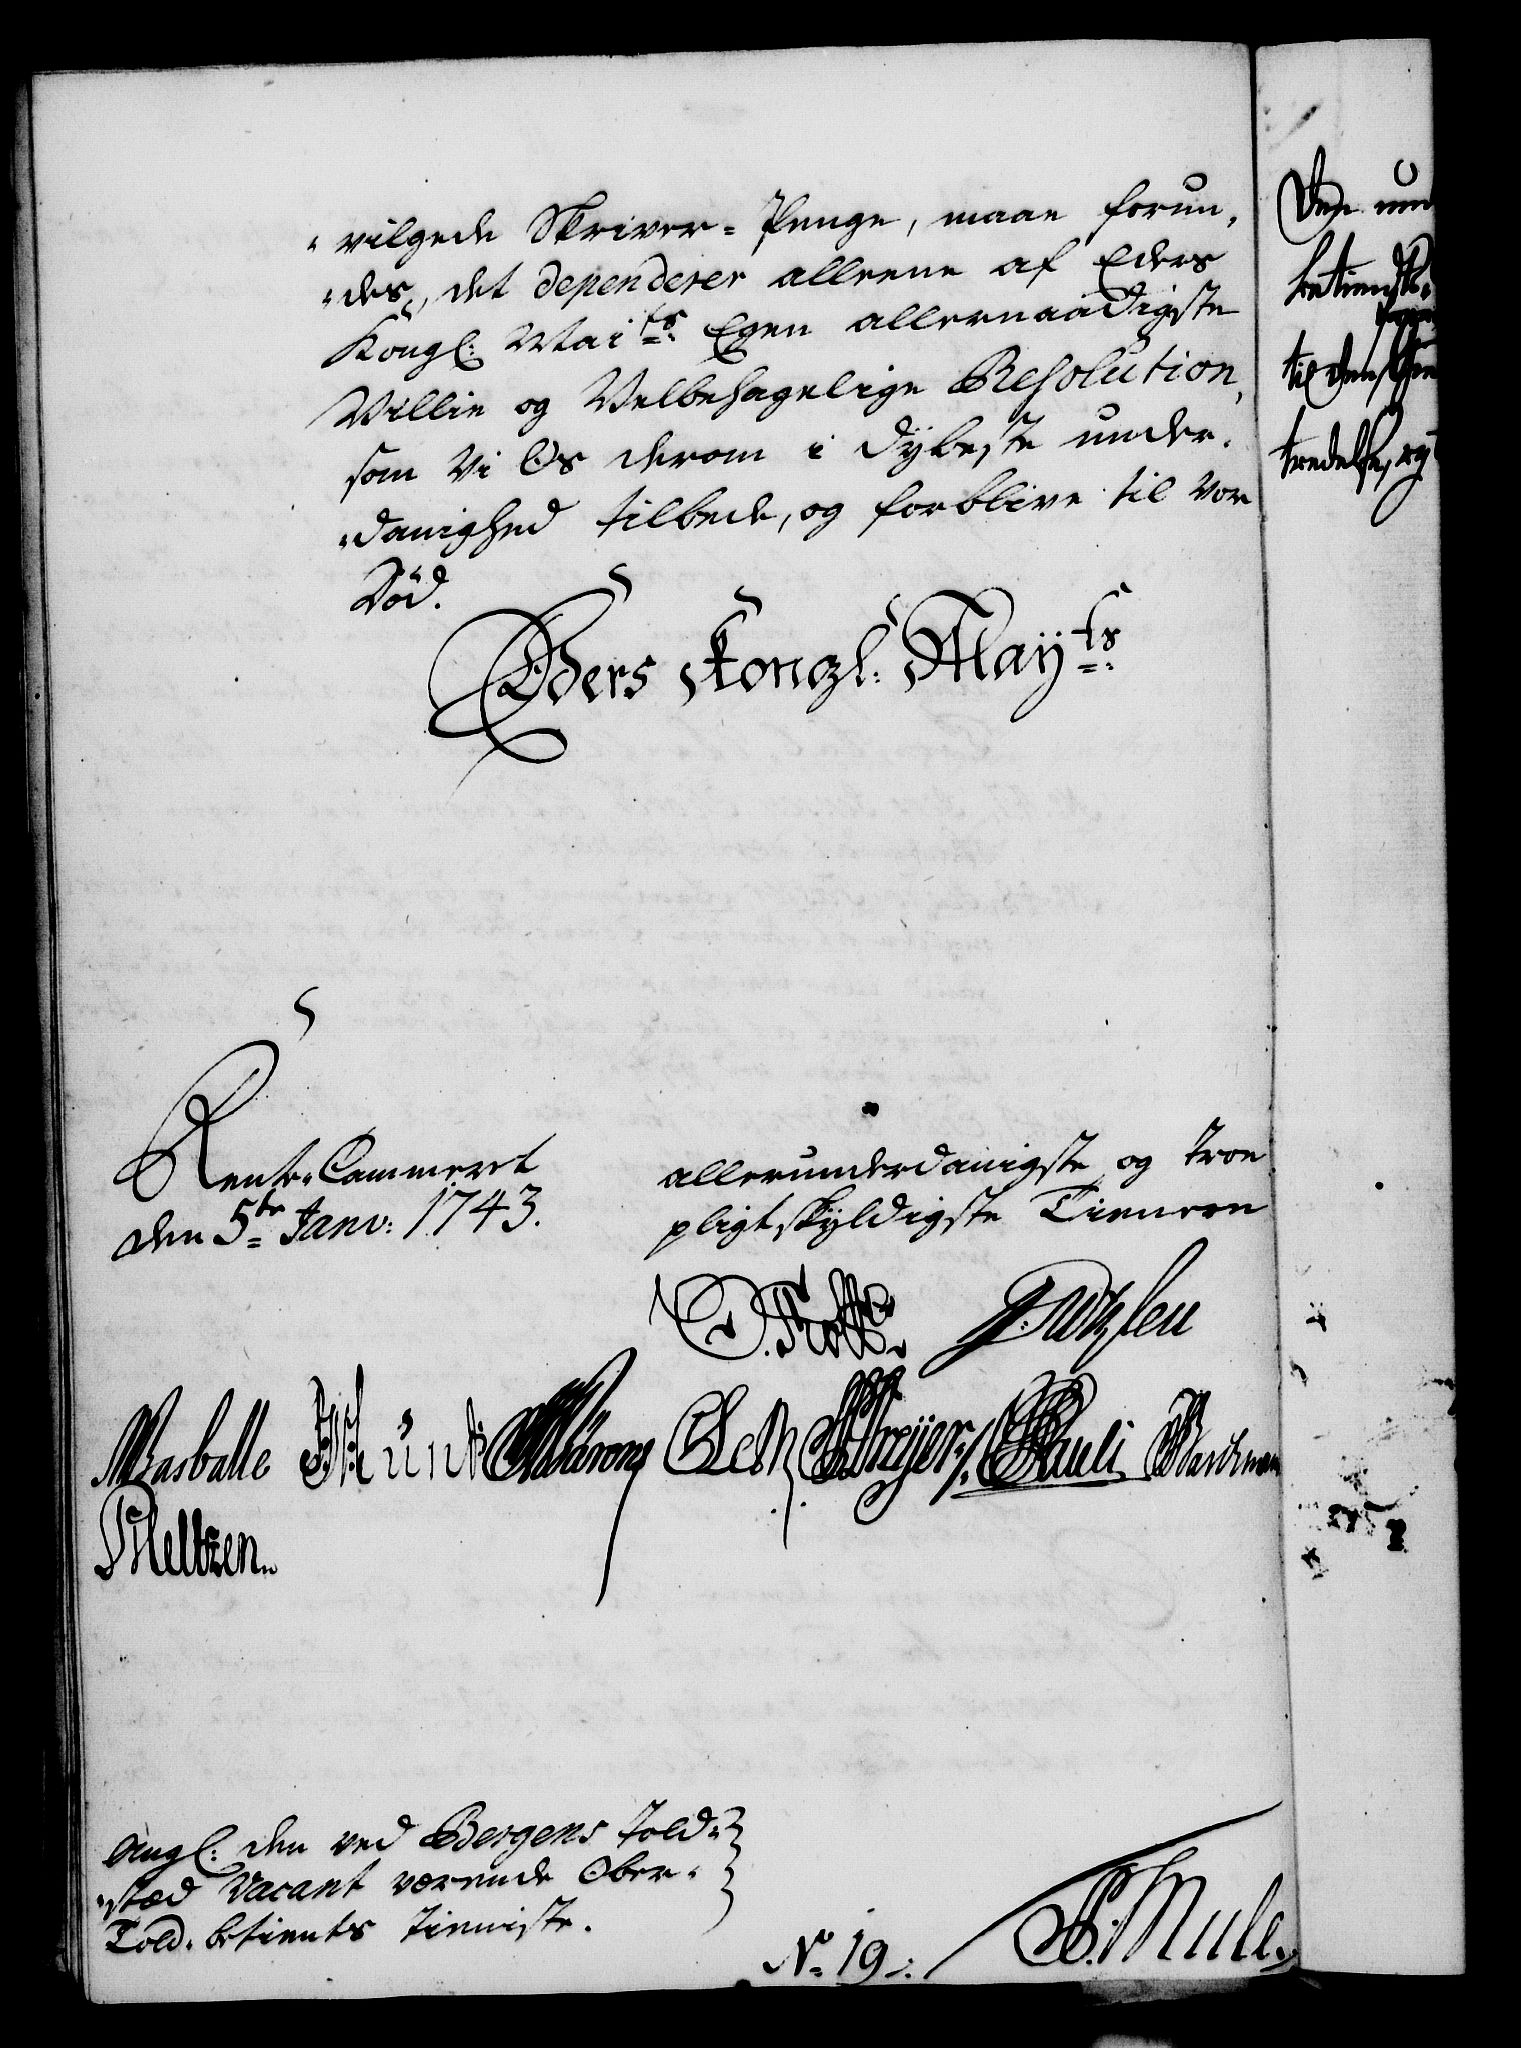 vilgede Skriver-Penge, maae forun-
"des, det dependerer alleene af Eders
Kongl: Mai^ts: Egen allernaadigste
Villie og Velbehagelige Resolution,
som Vi Os derom i dÿbeste under-
"danighed tilbede, og forblive til vor
Död.
Eders Kongl: Maÿ^ts:
Rente-Cammeret
den 5^te Janv: 1743.
allerunderdanigste og troe
pligtskÿldigste Tienere
Masballe
Pauli
Meltzen.
Angl: den ved Bergens Told-
"stæd Vacant værende Ober-
Told-betients tieniste.
No. 19.
Mule.
Den
til den